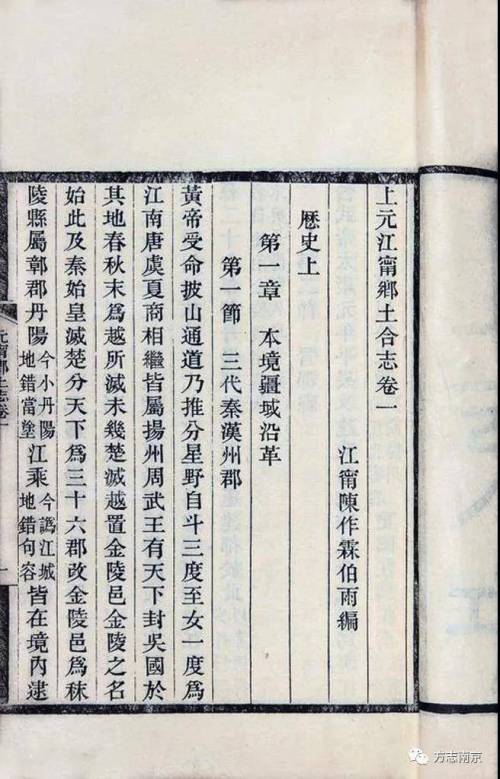 上元江甯鄉土合志卷一
江甯陳作霖伯雨編
歴史上
第一章 本境疆域沿革
第一節 三代秦漢州郡
黃帝受命披山通道乃推分星野自斗三度至女一度爲
江南唐虞夏商相繼皆屬揚州周武王有天下封吳國於
其地春秋末爲越所滅未幾楚滅越置金陵邑金陵之名
始此及秦始皇滅楚分天下爲三十六郡改金陵邑爲秣
陵縣屬鄣郡丹陽今小丹陽地錯當塗江乘今譌江城地錯句容皆在境內逮
元甯鄉土志卷一
一
方志南京